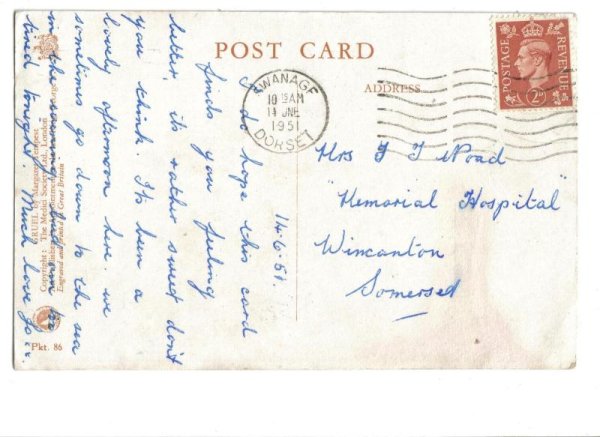 POST CARD
ADDRESS
SWANAGE
10 15 AM
14 JNE
1951
DORSET
POSTAGE
REVENUE
2D
14.6.51.
I do hope this card
finds you feeling
better, it's rather sweet don't
you think. It's been a
lovely afternoon here. we
sometimes go down to the sea
in the
tired tonight. Much love
Mrs F J Noad
"Memorial Hospital"
Wincanton
Somerset
GRUEL by Margaret Tempest
Copyright: The Medici Society Ltd., London
Engraved and printed in Great Britain
Pkt. 86